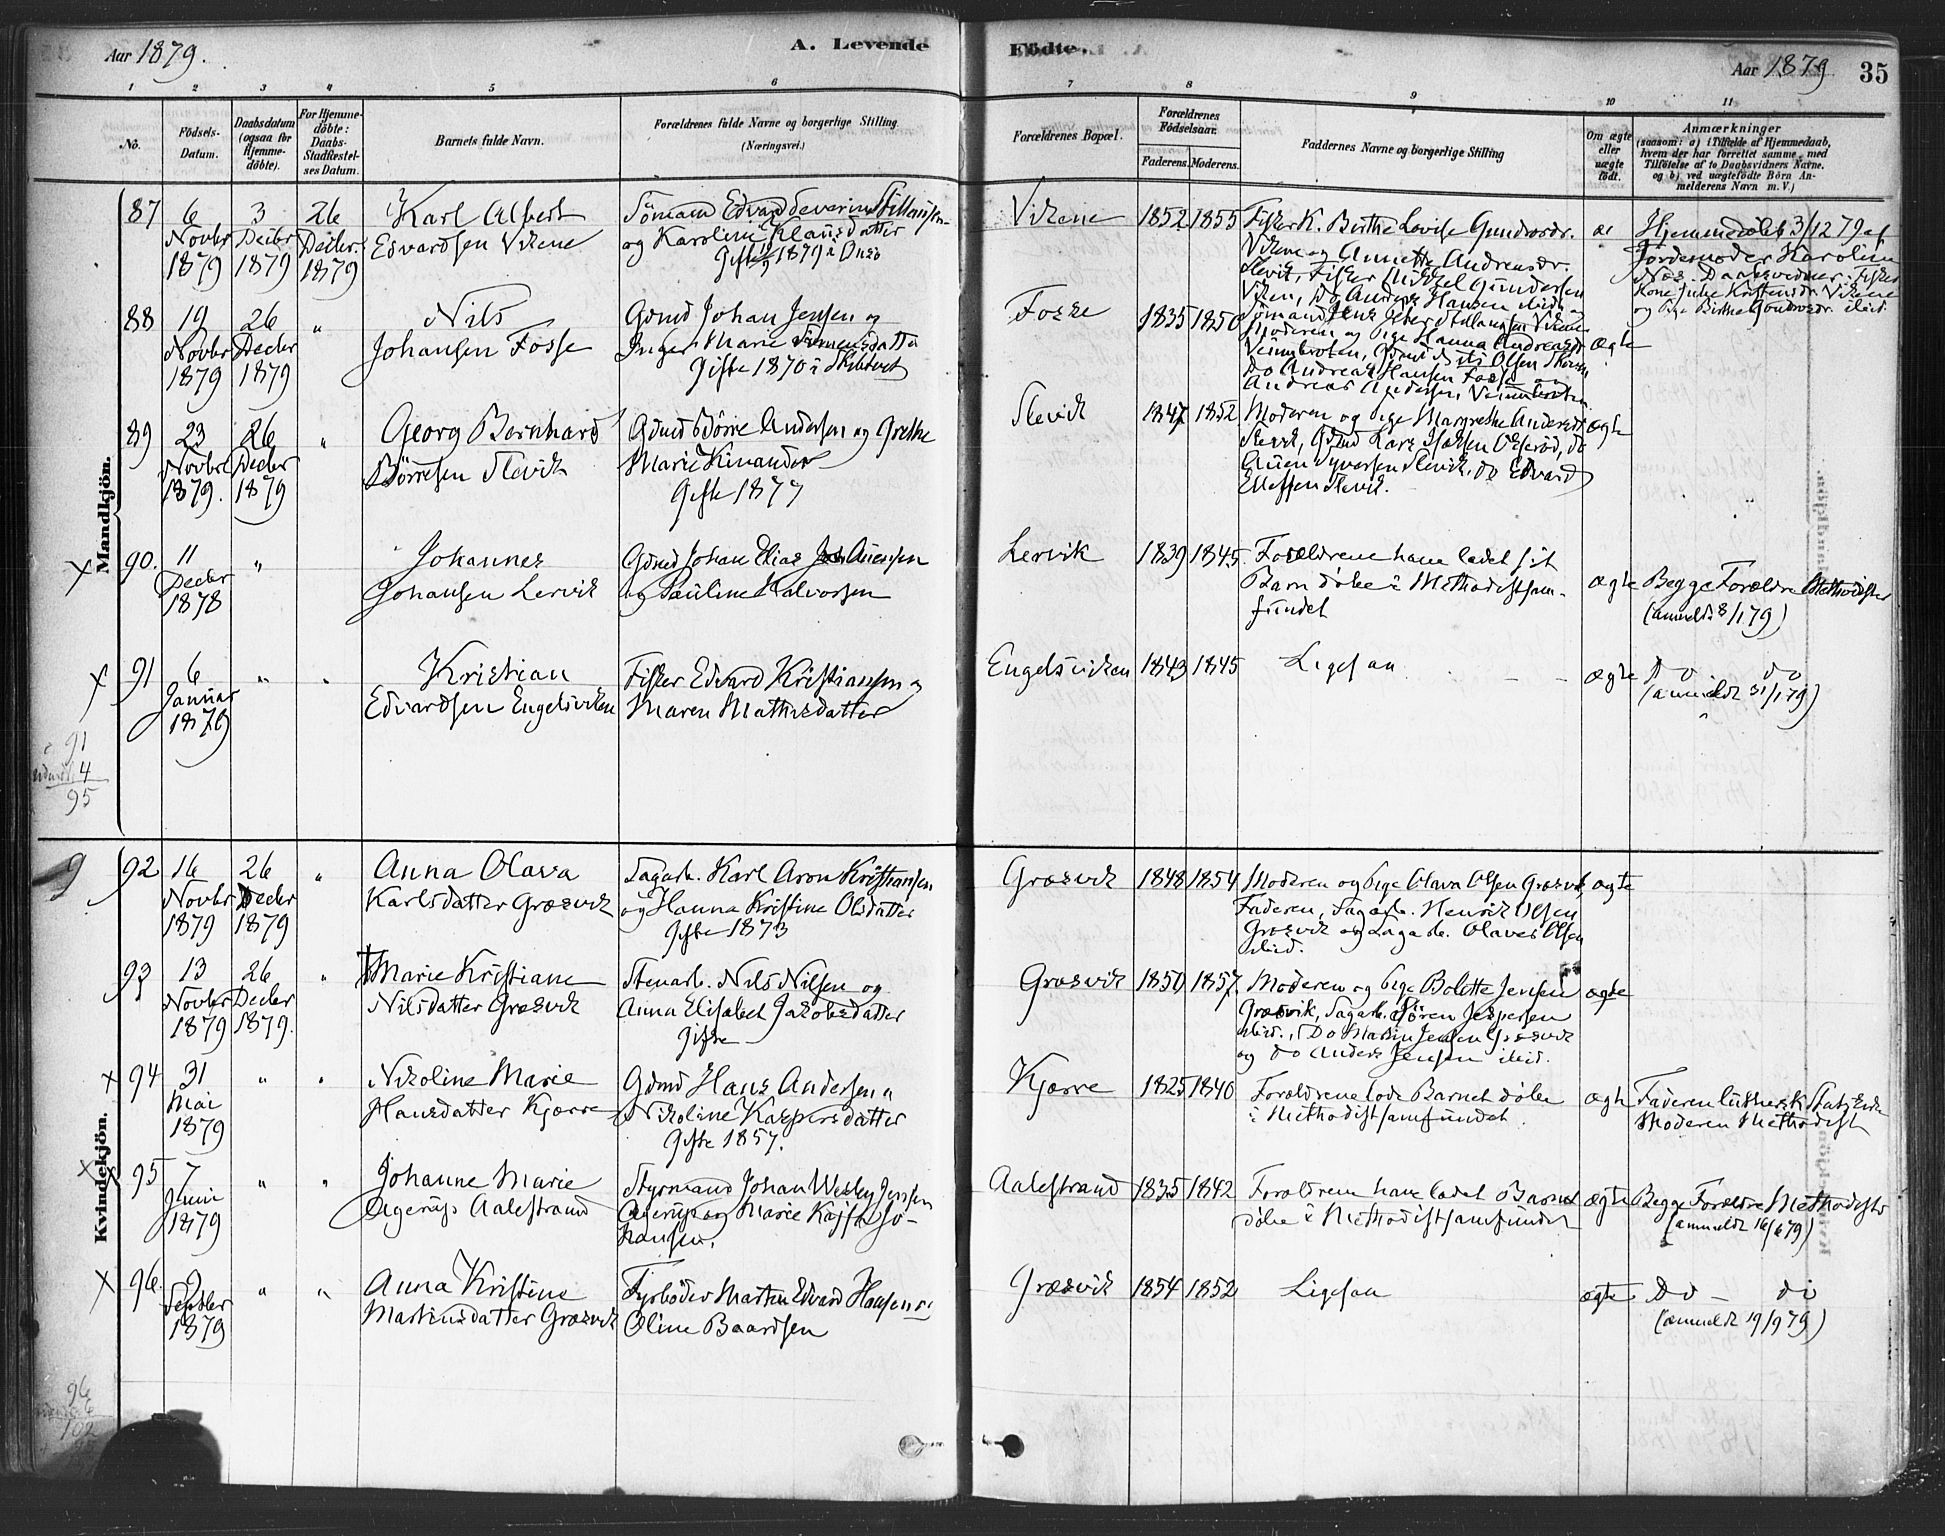 Aar 1879.
A. Levende
Födte.
Aar 1879.
35
1 2 3 4 5 6 7 8 9 10 11
No.
Födsels-
Datum.
Daabsdatum
(ogsaa for
Hjemme-
döbte).
For Hjemme-
döbte:
Daabs-
Stadfæstel-
ses Datum.
Barnets fulde Navn.
Forældrenes fulde Navne og borgerlige Stilling
(Næringsvei.)
Forældrenes Bopæl.
Forældrenes
Födselsaar.
Faderens. Moderens.
Faddernes Navne og borgerlige Stilling
Om ægte
eller
uægte
födt.
Anmærkninger
(saasom: a) i Tilfælde af Hjemmedaab,
hvem der har forrettet samme, med
Tilföielse af to Daabsvidners Navne.
og b) ved uægtefödte Börn An-
melderens Navn m. V.)
Mandkjön.
87
6
Novbr
1879
3
Decbr
1879
26
Decbr.
1879
Karl Albert
Edvardsen Vikene
Sömand Edvard Severin
og Karoline Klausdatter
Gifte 1879 i Onsö
Vikene
1852 1855
Fisker K. Berthe Lovise Gundersdr.
Vikene og Annette Andreasdr.
Slevik, Fisker Mikkel Gundersen
Viken, Do Anders Hansen ibid.
Hjemmedöbt 3/12 79 af
Jordemoder Karoline
Næs. Daabsvidner: Fisker
Kone Julie Kristensdr. Vikene
og Pige Birthe Gundersdr. ibid.
88
19
Novbr
1879
26
Decbr
1879
"
Nils
Johansen Fosse
Gdmd Johan Jensen og
Inger Marie Simensdatter
Gifte 1870 i Skibtvet
Fosse
1835 1850
Moderen og Pige Hanna Andreasdr
Do Andreas Hansen Fosse
Andreas Andersen,
ægte
89
23
Novbr
1879.
26
Decbr
1879
"
Georg Bernhard
Börresen Slevik
Gdmd Börre Andersen og Grethe
Marie Kinander
Gifte 1877
Slevik
1847 1852
Moderen og Pige Margrethe Andersdr
Slevik, Gdmd Lars
Slevik, Do Edvard
Ellefsen Slevik.
ægte
X 90.
11
Decbr
1878
"
Johannes
Johansen Lervik
Gdmd Johan Elias Auensen
og Pauline Halvorsen
Lervik
1839 1845
Forældrene have ladet sit
Barn döbe i Methodistsam-
fundet
ægte
Begge Forældre Methodister
(anmeldt 8/1 79)
X 91
6
Januar
1879
" "
Kristian
Edvardsen Engelsviken
Fisker Edvard Kristiansen og
Maren Mathisdatter
Engelsviken
1843 1845
Ligesaa
ægte
Do do
(anmeldt 31/1 79)
91
4
95
Kvindekjön.
9
92
16
Novbr
1879
26
Decbr
1879
"
Anna Olava
Karlsdatter Græsvik
Sagarb. Karl Aron Kristiansen
og Hanna Kristine Olsdatter
Gifte 1873
Græsvik
1848 1854
Moderen og Pige Olava Olsen Græsvik
Faderen, Sagarb. Henrik Olsen
Græsvik og Sagarb. Olaves Olsen
ibid.
ægte
93
13
Novbr
1879
26
Decbr
1879.
"
Marie Kristiane
Nilsdatter Græsvik
Stenarb. Nils Nilsen og
Anna Elisabet Jakobsdatter
Gifte
Græsvik
1850 1857
Moderen og Pige Bolette Jensen
Græsvik, Sagarb. Sören Jespersen
ibid., Do Martin Jensen Græsvik
og Do Anders Jensen ibid.
ægte
X 94
31
Mai
1879
" "
Nikoline Marie
Hansdatter Kjærre
Gdmd Hans Andersen "
Nikoline Kaspersdatter
Gifte 1857.
Kjærre
1825 1840
Forældrene lode Barnet döbe
i Methodistsamfundet.
ægte
Faderen luthersk Statskirke
Moderen Methodist
X 95
7
Juni
1879
" "
Johanne Marie
Agerup Aalestrand
Styrmand Johan Wesley Jensen
Agerup og Marie Jo-
hansen.
Aalestrand
1835 1842
Forældrene have ladet Barnet
döbe i Methodistsamfundet
ægte
Begge Forældre Methodister
(anmeldt 16/6 79)
X 96.
9
Septbr
1879
" "
Anna Kristine
Martinsdatter Græsvik
Fyrböder Martin Edvard Hansen
Oline Baardsen
Græsvik
1854 1852
Ligesaa
ægte
Do - do
(anmeldt 19/9 79)
96
6
102